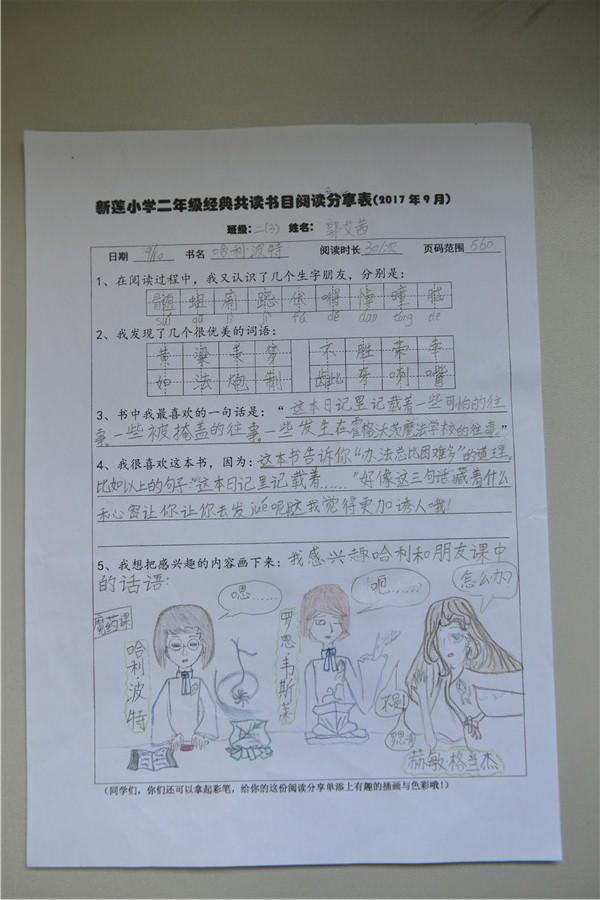 新莲小学二年级经典共读书目阅读分享表(2017年9月)
班级：二(3) 姓名：郭艾茜
日期 9/10 书名 哈利·波特 阅读时长 30/次 页码范围 560
1、在阅读过程中，我又认识了几个生字朋友，分别是：
髓 蛆
suí qū
2、我发现了几个很优美的词语：
黄粱美梦 不胜荣幸
如法炮制 龇牙咧嘴
3、书中我最喜欢的一句话是：“这本日记里记载着一些可怕的往
事。一些被掩盖的往事。一些发生在霍格沃茨魔法学校的往事。”
4、我很喜欢这本书，因为：这本书告诉你“办法总比困难多”的道理。
比如以上的句子：“这本日记里记载着……”好像这三句话藏着什么
秘密让你让你去发jué呢，这我觉得更加诱人哦！
5、我想把感兴趣的内容画下来：我感兴趣哈利和朋友课中
的话语：
魔药课
哈利·波特
嗯……
罗恩·韦斯莱
呃……
怎么办？
不是
赫敏·格兰杰
(同学们，你们还可以拿起彩笔，给你的这份阅读分享单添上有趣的插画与色彩哦！)